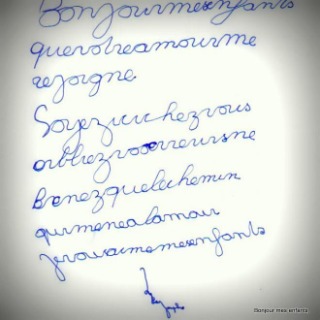 Bonjourmesenfants
quevotreamourme
rejoigne
Soyez chezvous
oubliez voserreursne
prenezquelechemin
quimenealamour
jevousaimemesenfants
Bonjour mes enfants